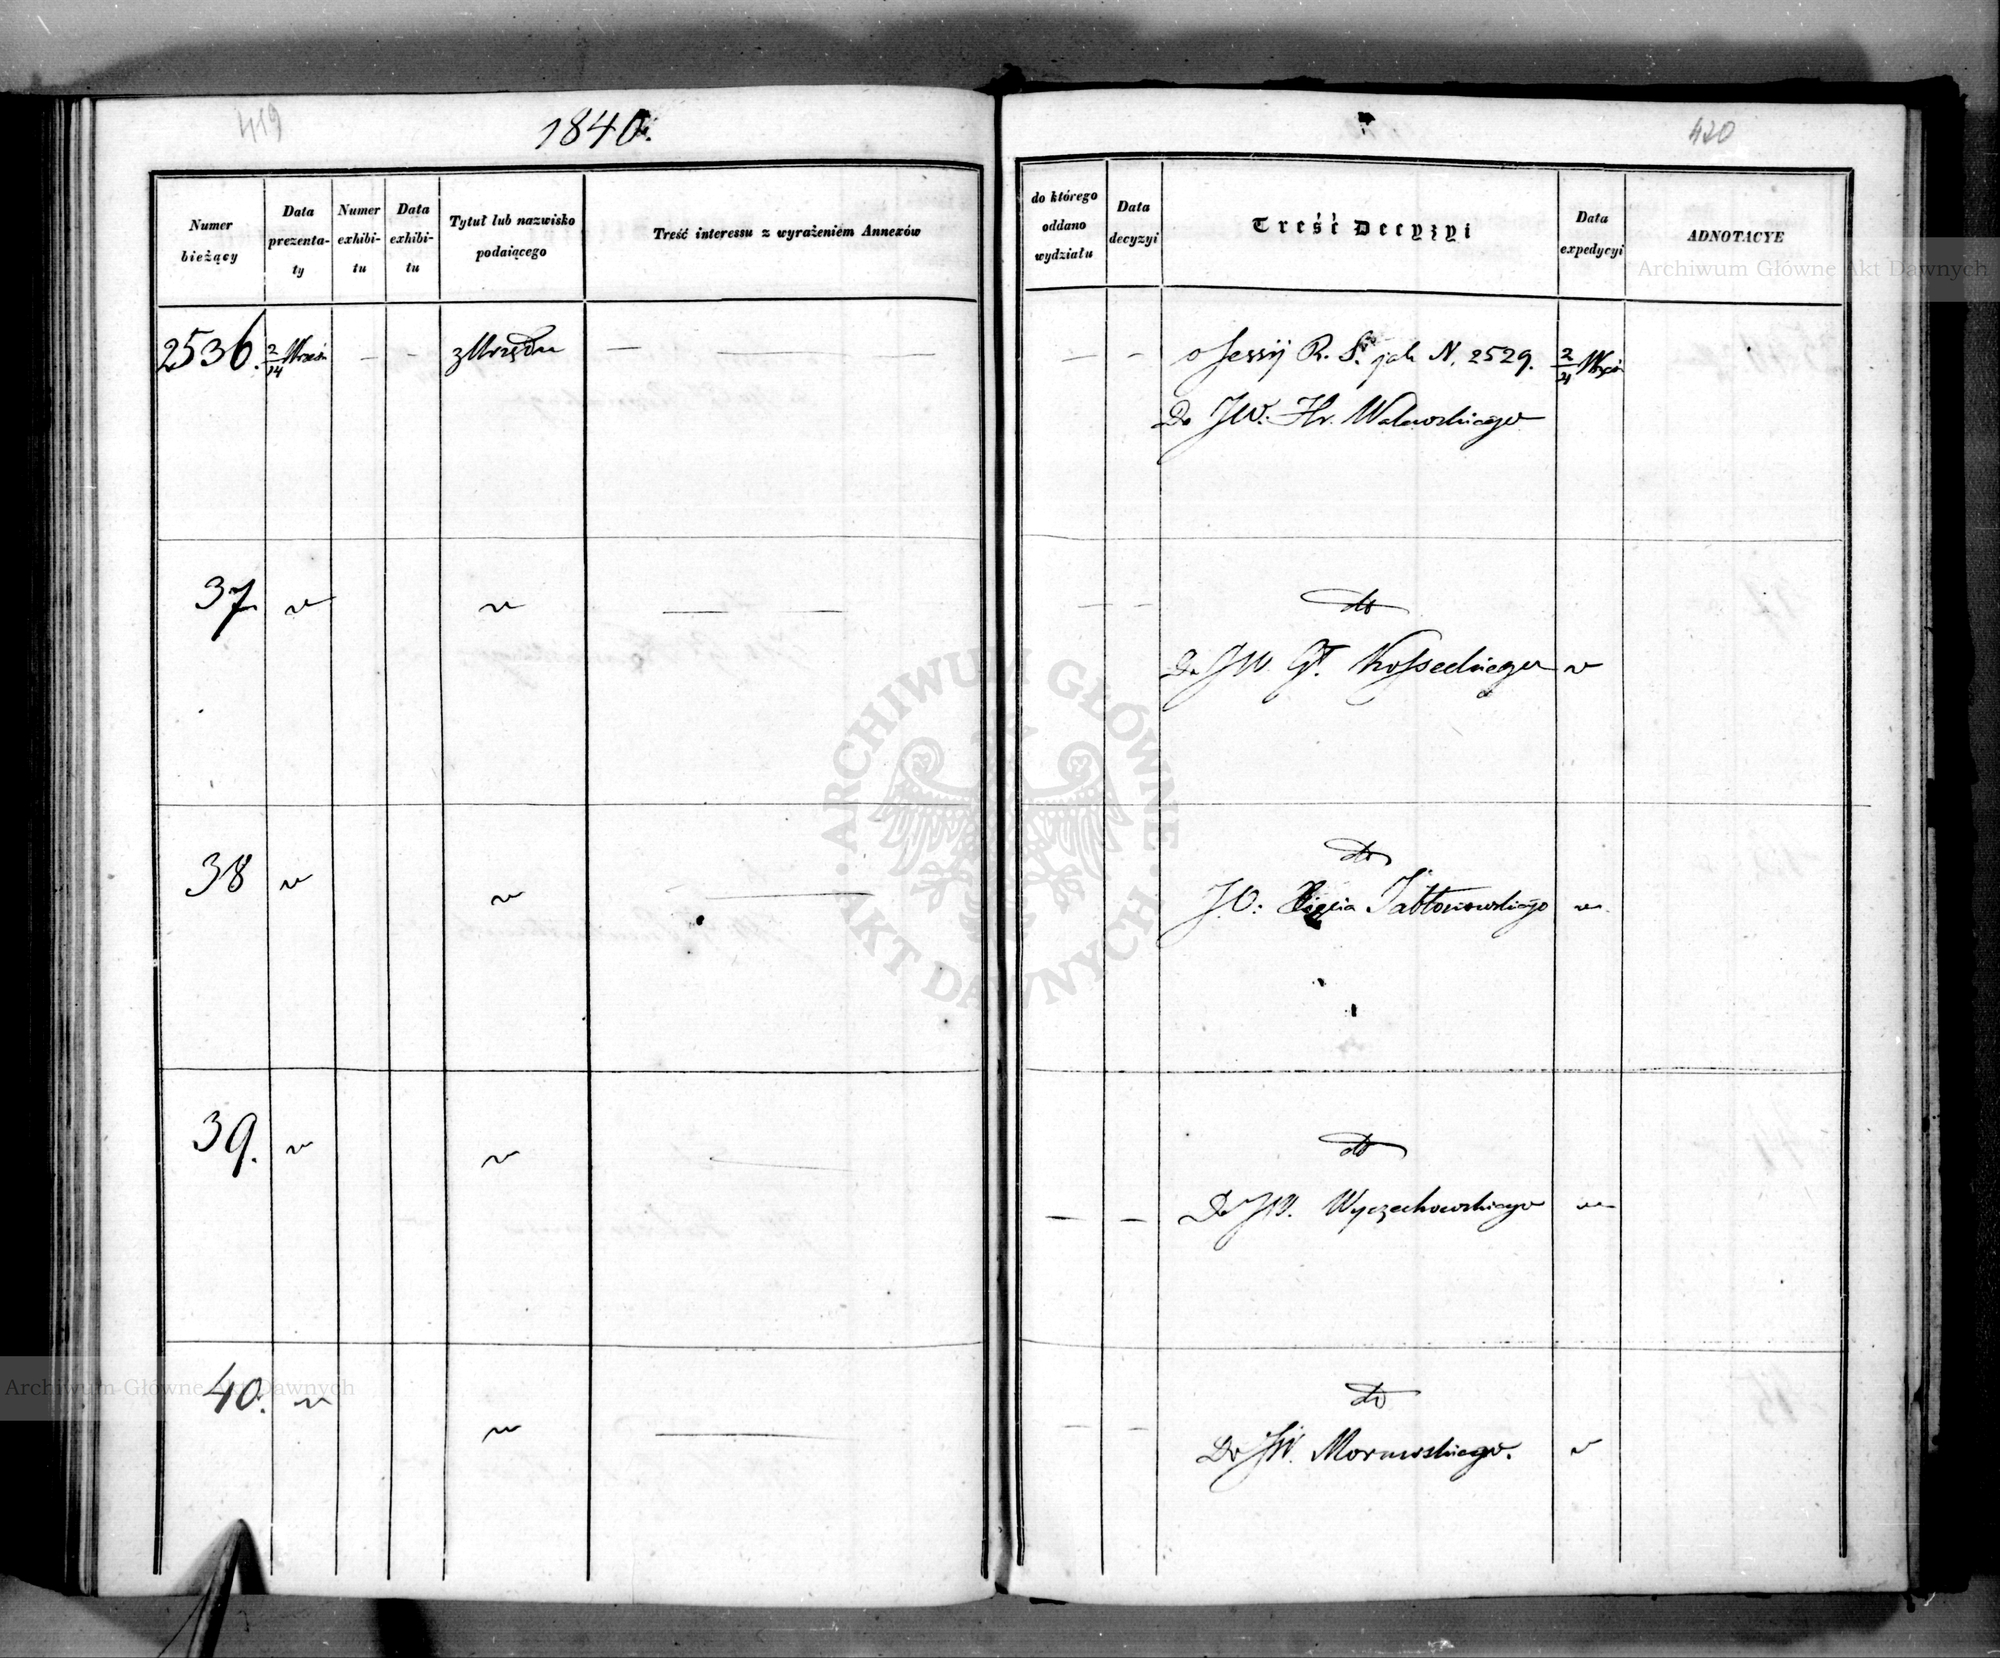 419
1840.
Numer bieżący
Data prezenta-ty
Numer exhibi-tu
Data exhibi-tu
Tytuł lub nazwisko podaiącego
Treść interessu z wyrażeniem Annexów
2536. 2/14 Wrześn — — z Urzędu — — —
37. " " —
38 " " —
39. " " —
40. " " —
420
do którego oddano wydziału
Data decyzyi
Treść Decyzyi
Data expedycyi
ADNOTACYE
— — o Sessyi R. S. jak N. 2529. 2/21
Do JW. Hr. Walewskiego
— — do
Do JW. Gł. Kosseckiego "
do
J.O: Xięcia Jabłonowskiego "
do
— — Do JW. Wyczechowskiego "
do
— — Do JW. Morawskiego. "
ARCHIWUM GŁÓWNE AKT DAWNYCH
Archiwum Główne Akt Dawnych
Archiwum Główne Akt Dawnych